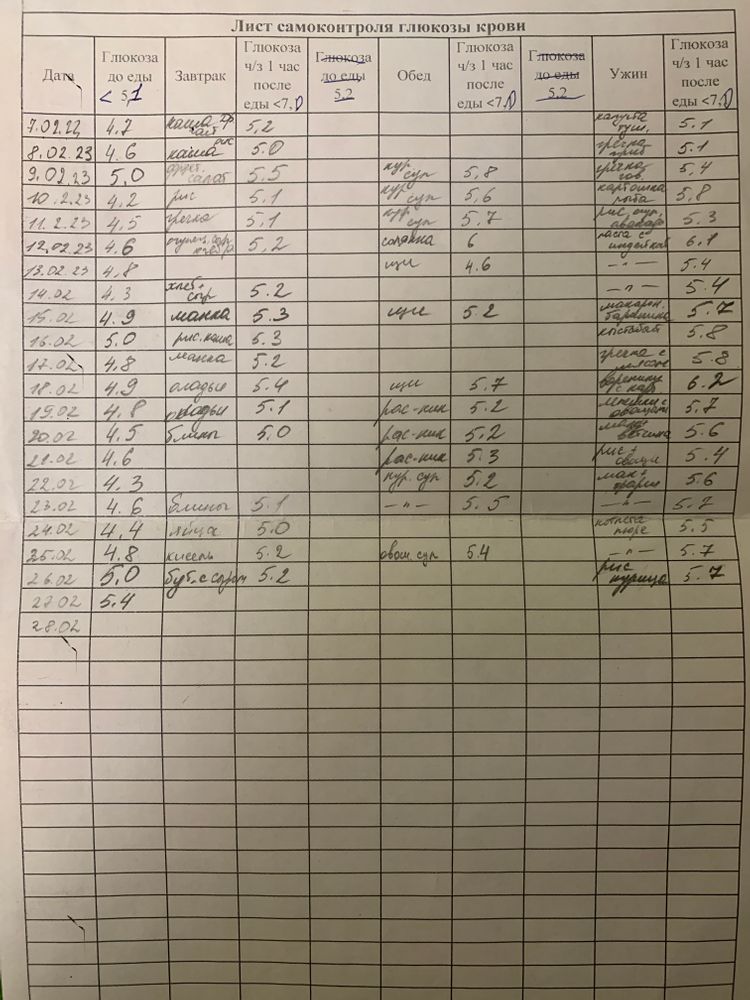 Лист самоконтроля глюкозы крови
Дата
Глюкоза
до еды
< 5,1
Завтрак
Глюкоза
ч/з 1 час
после
еды <7,0
Глюкоза
до еды
5,2
Обед
Глюкоза
ч/з 1 час
после
еды <7,0
Глюкоза
до еды
5,2
Ужин
Глюкоза
ч/з 1 час
после
еды <7,0
7.02.23 4.7 каша 5,2 капуста туш, 5.1
8.02.23 4.6 каша рис 5.0 гречка 5.1
9.02.23 5,0 салат 5.5 кур суп 5,8 гречка гов. 5,4
10.2.23 4,2 рис 5.1 кур суп 5,6 картошка рыба 5,8
11.2.23 4,5 гречка 5,1 кур суп 5.7 рис, огур, авокадо 5.3
12.02.23 4.6 5,2 солянка 6 паста с индейкой 6.1
13.02.23 4,8 щи 4.6 -"- 5.4
14.02 4.3 хлеб+ сыр 5.2 -"- 5.4
15.02 4.9 манка 5.3 щи 5.2 макарон. баранина 5.7
16.02 5.0 рис. каша 5.3 кыстыбай 5.8
17.02 4.8 манка 5.2 гречка с мясом 5.8
18.02 4.9 оладьи 5.4 щи 5.7 вареники с кар 6.2
19.02 4.8 оладьи 5.1 рас-ник 5.2 с овощами 5.7
20.02 4.5 блины 5,0 рас-ник 5.2 мак+ ветчина 5.6
21.02 4.6 рас-ник 5.3 рис + овощи 5.4
22.02 4.3 кур. суп 5.2 мак+ фарш 5.6
23.02 4.6 блины 5.1 -"- 5.5 -"- 5.7
24.02 4.4 яйца 5.0 котлета пюре 5.5
25.02 4.8 кисель 5.2 овощ. суп 5.4 -"- 5.7
26.02 5,0 бут. с сыром 5.2 рис курица 5.7
27.02 5.4
28.02